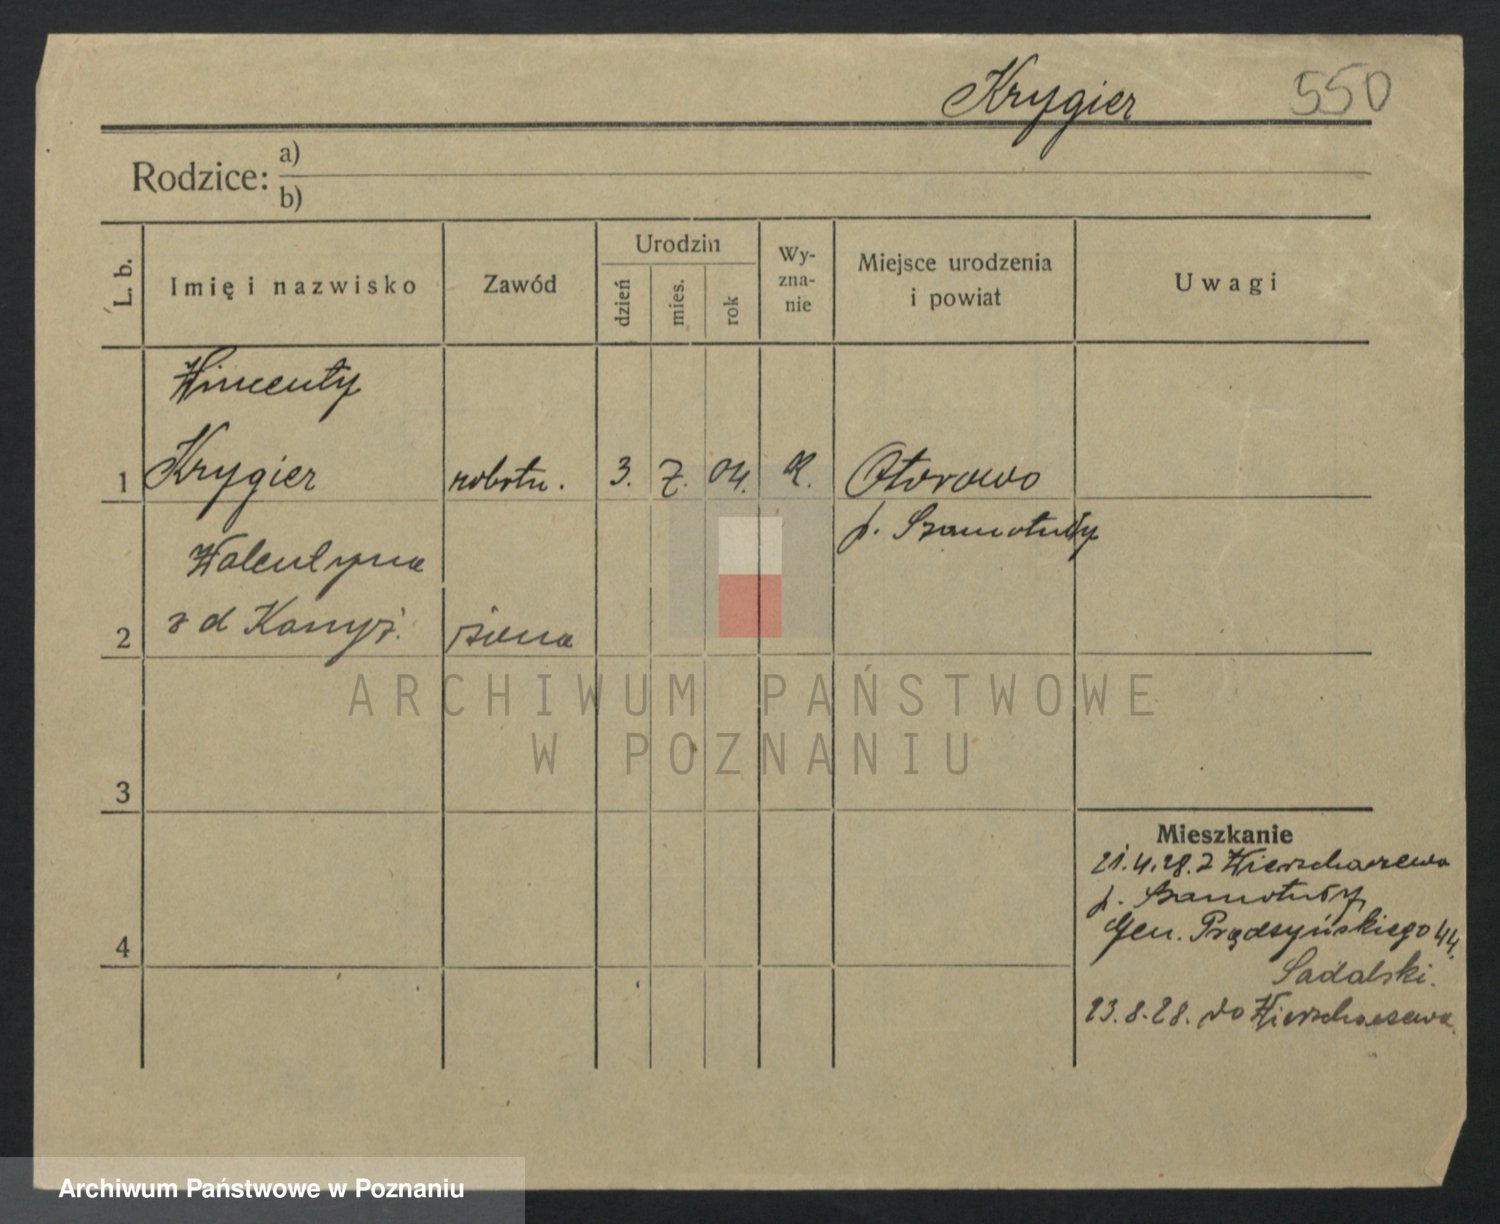 Krygier 550
Rodzice: a)
b)
L. b. Imię i nazwisko Zawód Urodzin dzień mies. rok Wy-zna-nie Miejsce urodzenia i powiat Uwagi
Wincenty
1 Krygier robotn. 3. 7. 04. K. Otorowo
p. Szamotuły
Walentyna
2 z d żona
ARCHIWUM PAŃSTWOWE
W POZNANIU
3
Mieszkanie
21.4.28. z Wierzchaczewa
p. Szamotuły
4 Gen. Prądzyńskiego 44.
Sadalski.
23.8.28. do Wierzchaczewa
Archiwum Państwowe w Poznaniu